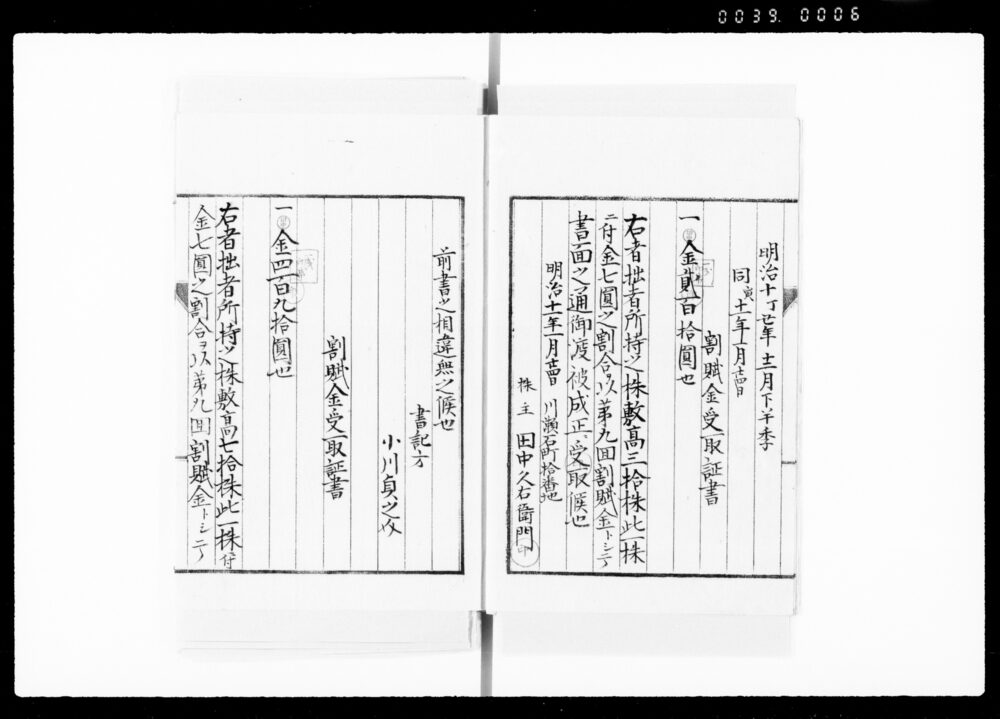 0039. 0006
明治十丁丑年十二月下半季
同寅十一年一月廿四日
割賦金受取証書
一金貳百拾圓也
右者拙者所持之株敷高三拾株此一株
ニ付金七圓之割合ヲ以第九回割賦金トシテ
書面之通御渡被成正ニ受取候也
明治十一年一月廿四日 川瀬石町拾番地
株主 田中久右衛門 印
前書之相違無之候也
書記方
小川貞之
割賦金受取証書
一金四百九拾圓也
右者拙者所持之株敷高七拾株此一株ニ付
金七圓之割合ヲ以第九回割賦金トシテ